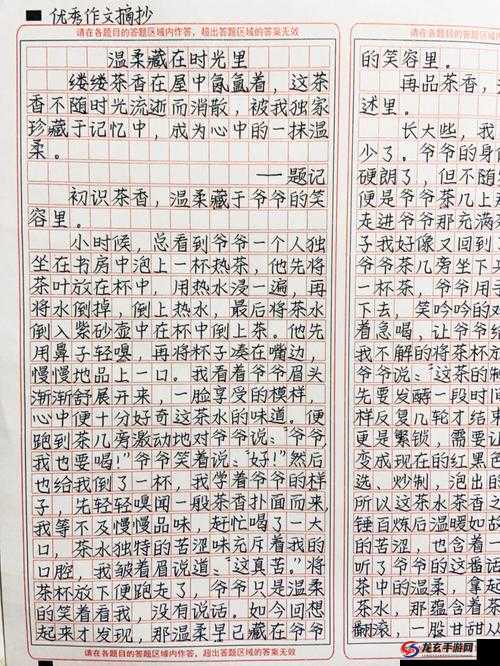 ■ 优秀作文摘抄
请在各题目的答题区域内作答，超出答题区域的答案无效
温柔藏在时光里
缕缕茶香在屋中氤氲着，这茶
香不随时光流逝而消散，被我独家
珍藏于记忆中，成为心中的一抹温
柔。
——题记
初识茶香，温柔藏于爷爷的笑
容里。
小时候，总看到爷爷一个人独
坐在书房中泡上一杯热茶，他先将
茶叶放在杯中，用热水浸一遍，再
将水倒掉，倒上热水，最后将茶水
倒入紫砂壶中在杯中倒上茶。他先
用鼻子轻嗅，再将杯子凑在嘴边，
慢慢地品上一口。我看着爷爷眉头
渐渐舒展开来，一脸享受的模样，
心中便十分好奇这茶水的味道。便
跑到茶几旁激动地对爷爷说：“爷爷
我也要喝！”爷爷笑着说：“好！”然后
也给我倒了一杯，我学着爷爷的样
子，先轻轻嗅闻一般茶香扑面而来，
我等不及慢慢品味，赶忙喝了一大
口，茶水独特的苦涩味充斥着我的
口腔，我皱着眉说道：“这真苦。”将
茶杯放下便跑走了，爷爷只是温柔
的笑着看我，没有说话。如今回想
起来才发现，那温柔早已藏在爷爷
请在各题目的答题区域内作答，超出答题区域的答案无效
请在各题目的答题区域内作答，超
的笑容里。
再品茶香，
述里。
长大些，我
少了。爷爷的身
硬朗了，但不随
便是爷爷茶几上那
走进爷爷那充满
子我好像又回到
爷爷茶几旁坐下
一杯茶，爷爷用手
下去，笑吟吟的
着急喝，让爷爷给
我不解的将茶杯
爷爷说：“这茶的制
先要发酵一段时间
样反复几轮才结束
更是繁锁，需要让
变成现在的红黑色
选，炒制，泡出的
所以这茶水茶香
锤百炼后温暖如故
的苦涩，也含着一
听了爷爷的这番话
茶中的温柔，拿起
茶水，那蕴含着茶
翻滚，一股甘甜入
请在各题目的答题区域内作答
龙玄手游网